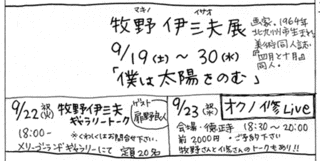 マキノ イサオ
牧野 伊三夫展
画家。1964年
北九州市生まれ
美術同人誌
『四月と十月』
同人。
9/19(土)~30(水)
「僕は太陽をのむ」
9/22(火)祝 牧野伊三夫
ギャラリートーク
ゲスト 扉野良人
18:00-
※くわしくはお問合せ下さい
メリーゴーランドギャラリーにて 定員20名
9/23(水)祝 オクノ修Live
会場・徳正寺 18:30~20:00
前2000円・ご予約下さい
牧野さんと修さんのトークもあり!!